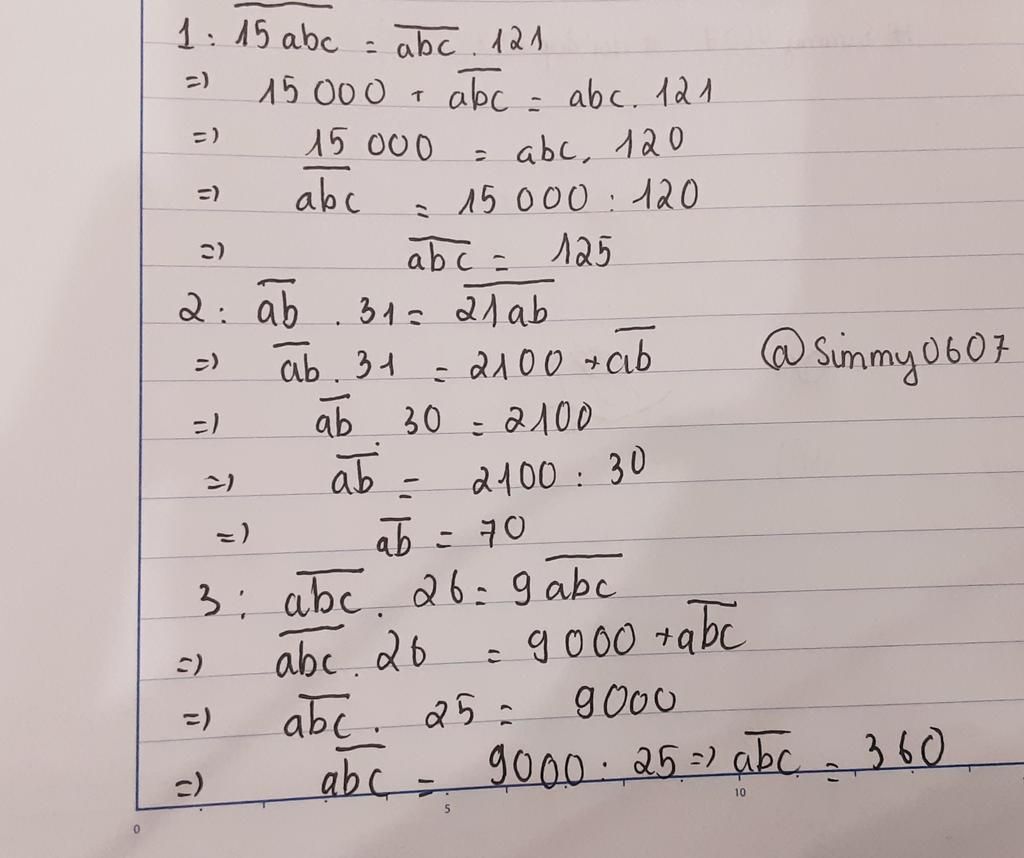 1: 15abc = abc . 121
=) 15 000 + abc = abc. 121
=) 15 000 = abc. 120
=) abc = 15 000 : 120
=) abc = 125
2: ab . 31 = 21ab
=) ab . 31 = 2100 + ab @Simmy0607
=) ab . 30 = 2100
=) ab = 2100 : 30
=) ab = 70
3: abc . 26 = 9abc
=) abc . 26 = 9000 + abc
=) abc . 25 = 9000
=) abc = 9000 : 25 =) abc = 360
0 5 10